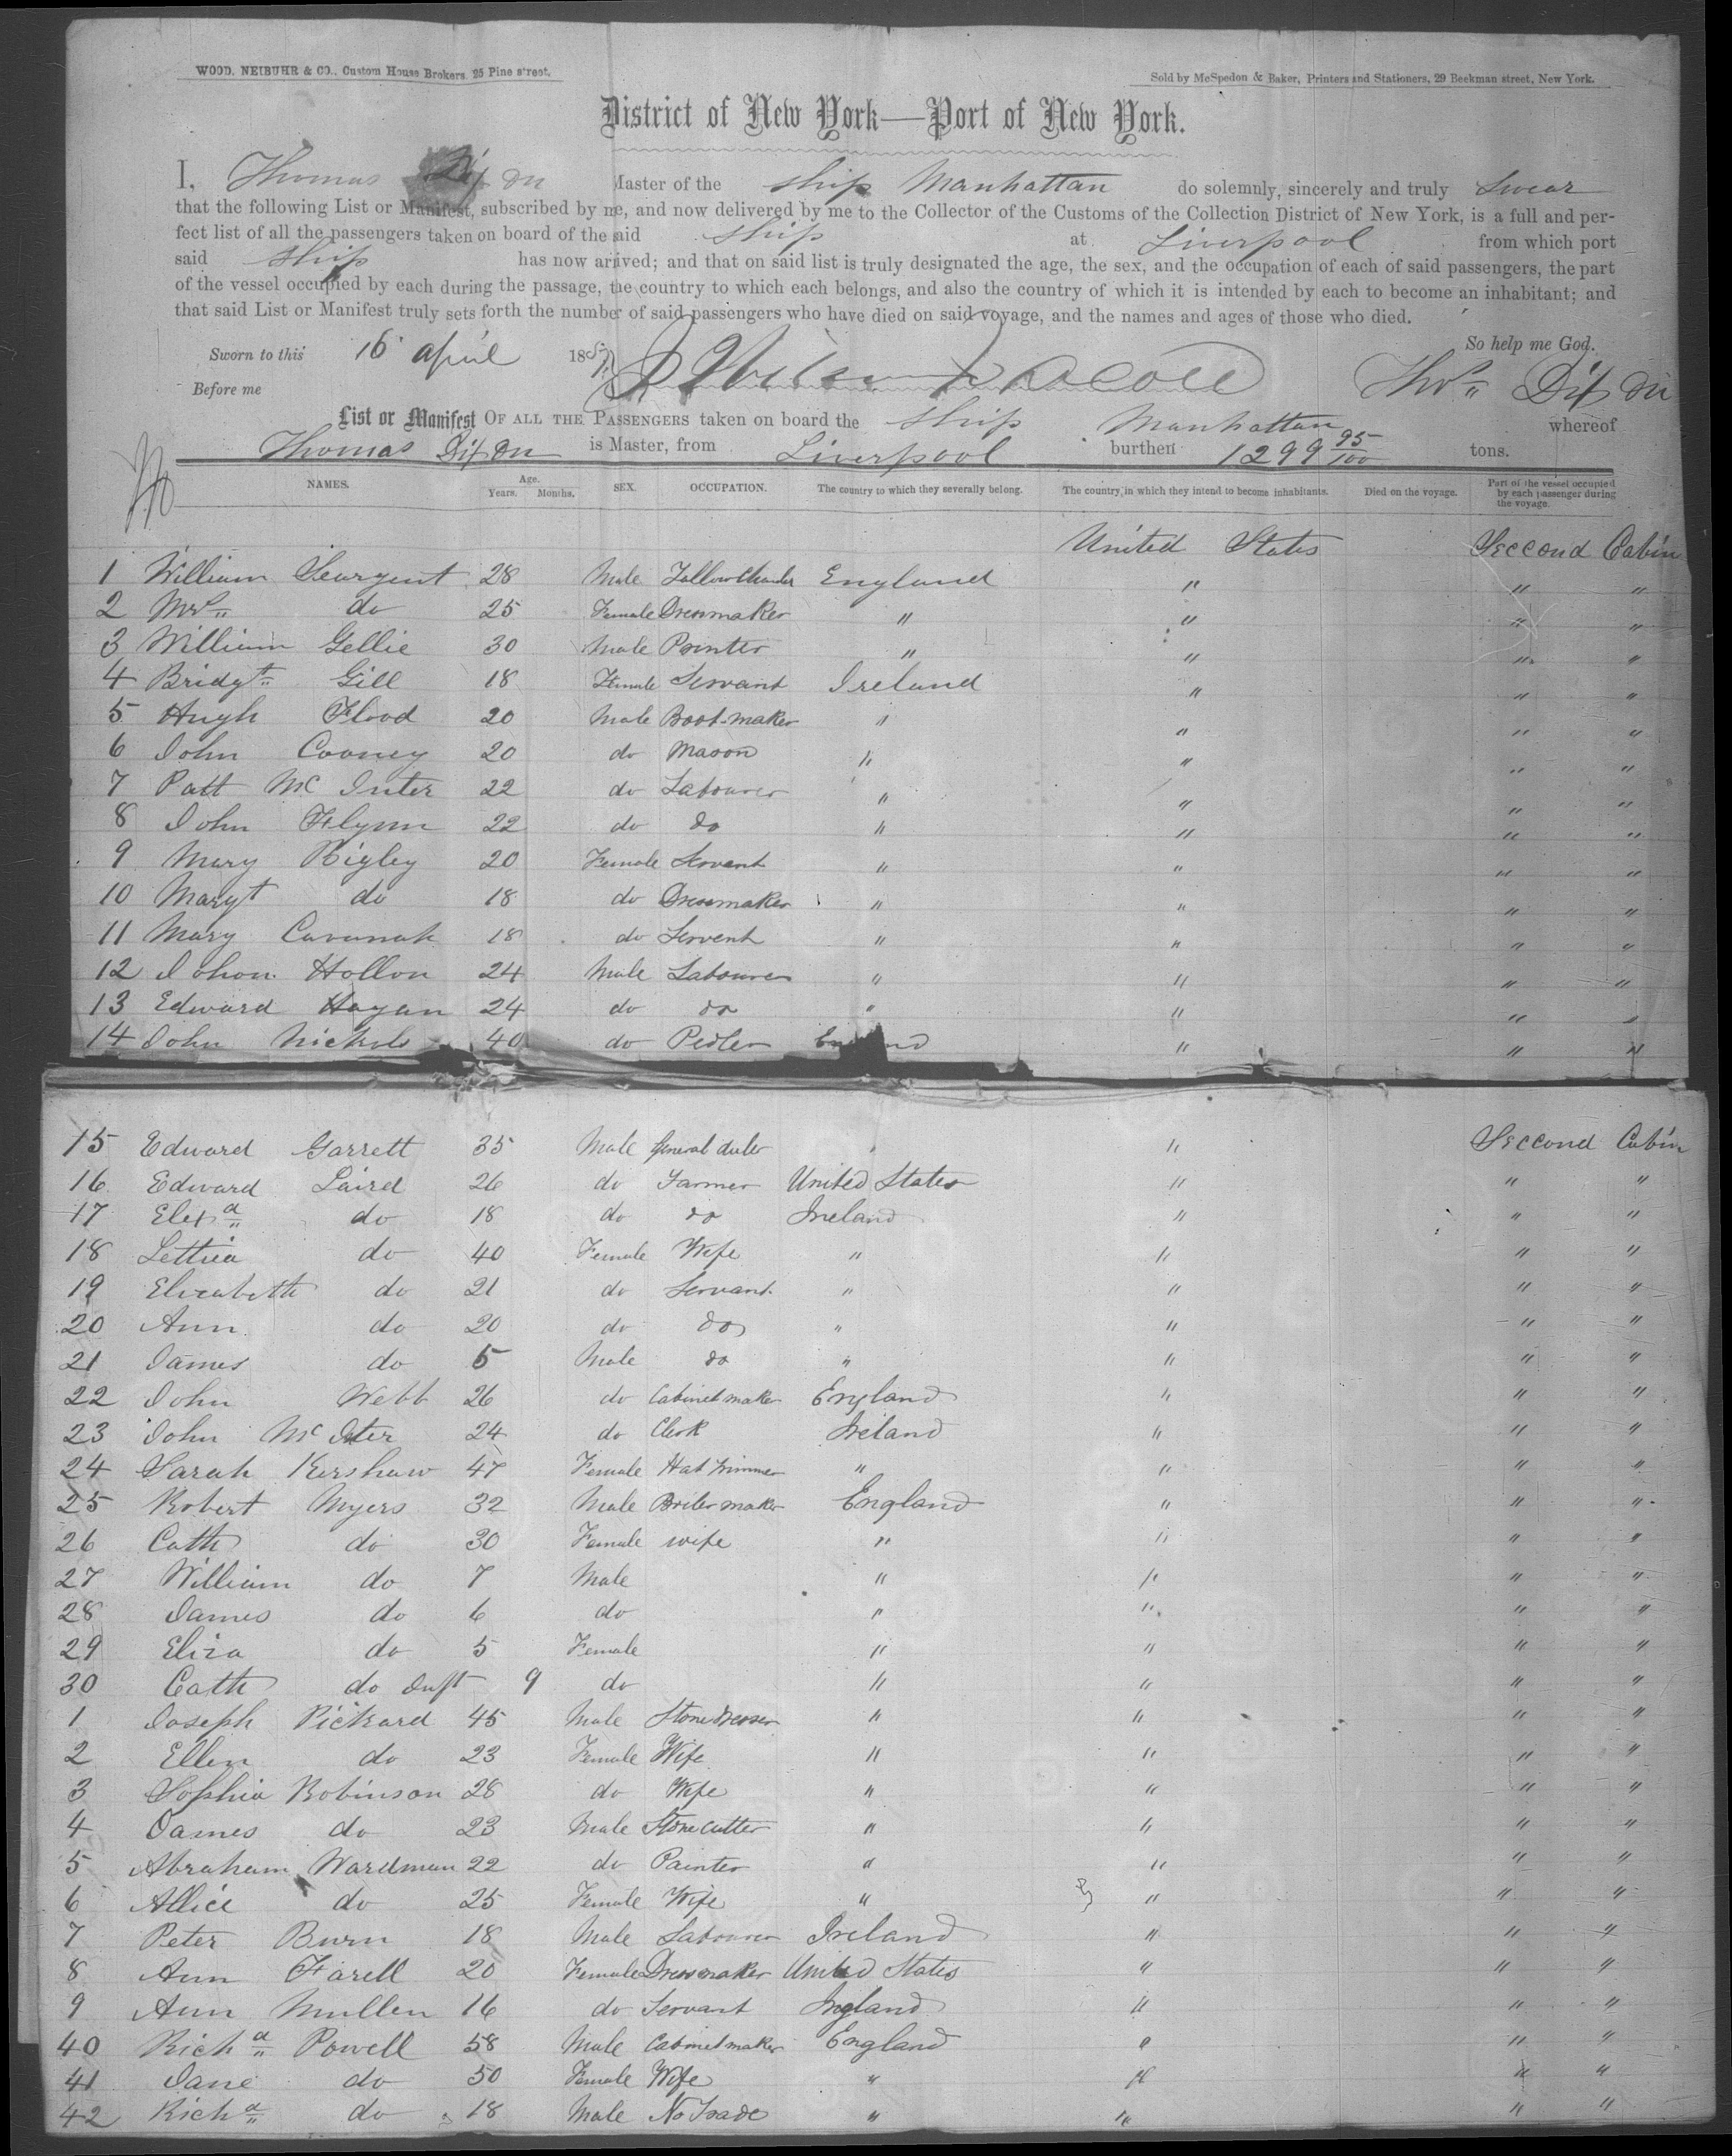 WOOD, NEIBUHR & CO., Custom House Brokers, 25 Pine street.
Sold by McSpedon & Baker, Printers and Stationers, 29 Beekman street, New York.
District of New York—Port of New York.
I, Thomas Dixon Master of the ship Manhattan do solemnly, sincerely and truly Swear
that the following List or Manifest, subscribed by me, and now delivered by me to the Collector of the Customs of the Collection District of New York, is a full and per-
fect list of all the passengers taken on board of the said ship at Liverpool from which port
said ship has now arived; and that on said list is truly designated the age, the sex, and the occupation of each of said passengers, the part
of the vessel occupied by each during the passage, the country to which each belongs, and also the country of which it is intended by each to become an inhabitant; and
that said List or Manifest truly sets forth the number of said passengers who have died on said voyage, and the names and ages of those who died.
Sworn to this 16 april 185 So help me God.
Before me Thos Dixon
List or Manifest OF ALL THE PASSENGERS taken on board the ship Manhattan whereof
Thomas Dixon is Master, from Liverpool burthen 1299 95/100 tons.
No NAMES. Age. Years. Months. SEX. OCCUPATION. The country to which they severally belong. The country in which they intend to become inhabitants. Died on the voyage. Part of the vessel occupied by each passenger during the voyage.
United States Seccond Cabin
1 William Seargent 28 Male Tallow Chandler England " " "
2 Mrs do 25 Female Dressmaker " " " "
3 William Gellie 30 Male Printer " " " "
4 Bridgt Gill 18 Female Servant Ireland " " "
5 Hugh Flood 20 Male Boot-maker " " " "
6 John Cooney 20 do Mason " " " "
7 Patt Mc Inter 22 do Labourer " " " "
8 John Flynn 22 do do " " " "
9 Mary Rigley 20 Female Servent " " " "
10 Maryt do 18 do Dressmaker " " " "
11 Mary Cavanah 18 do Servent " " " "
12 Johon Hollon 24 Male Labourer " " " "
13 Edward Hagan 24 do do " " " "
14 John Nichols 40 do Pedler England " " "
15 Edward Garrett 35 Male General dealer " " Seccond Cabin
16 Edward Laird 26 do Farmer United States " " "
17 Elexa do 18 do do Ireland " " "
18 Letticia do 40 Female Wife " " " "
19 Elizabeth do 21 do Servant " " " "
20 Ann do 20 do do " " " "
21 James do 5 Male do " " " "
22 John Webb 26 do Cabinet maker England " " "
23 John Mc Iter 24 do Clerk Ireland " " "
24 Sarah Kershaw 47 Female Hat trimmer " " " "
25 Robert Myers 32 Male Boiler maker England " " "
26 Cath do 30 Female wife " " " "
27 William do 7 Male " " " "
28 James do 6 do " " " "
29 Eliza do 5 Female " " " "
30 Cath do Inft 9 do " " " "
1 Joseph Pickard 45 Male Stone Dresser " " " "
2 Ellen do 23 Female Wife " " " "
3 Sophia Robinson 28 do Wife " " " "
4 James do 23 Male Stone cutter " " " "
5 Abraham Wardman 22 do Painter " " " "
6 Allice do 25 Female Wife " " " "
7 Peter Burn 18 Male Labourer Ireland " " "
8 Ann Farell 20 Female Dressmaker United States " " "
9 Ann Mullen 16 do Servant Ingland " " "
40 Richd Powell 58 Male Cabinetmaker England " " "
41 Jane do 50 Female Wife " " " "
42 Richd do 18 Male No Trade " " " "